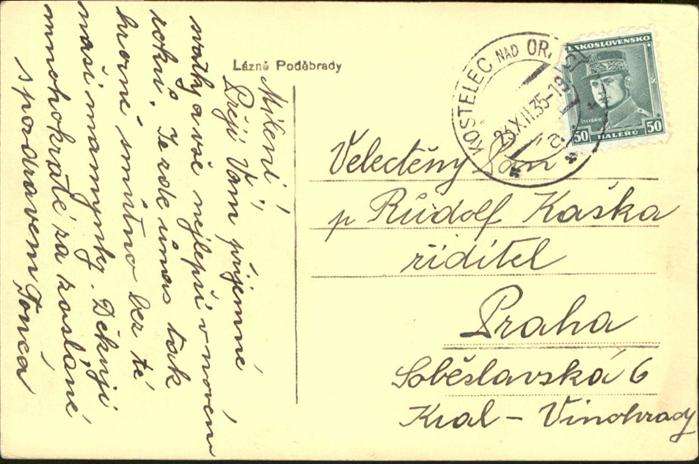 Lázně Poděbrady
Milení!
Přeji Vám příjemné
svátky a vše nejlepší v novém
roku. Je zde u nás tak
smutno bez té
naší maminky. Děkuji
mnohokráte za zaslané,
s pozdravem Tonča
KOSTELEC NAD ORL.
23.XII.35-18
ČESKOSLOVENSKO
50 HALÉŘŮ 50
Velectěný Pan
p Rudolf Kaška
řiditel
Praha
Soběslavská 6
Kral - Vinohrady